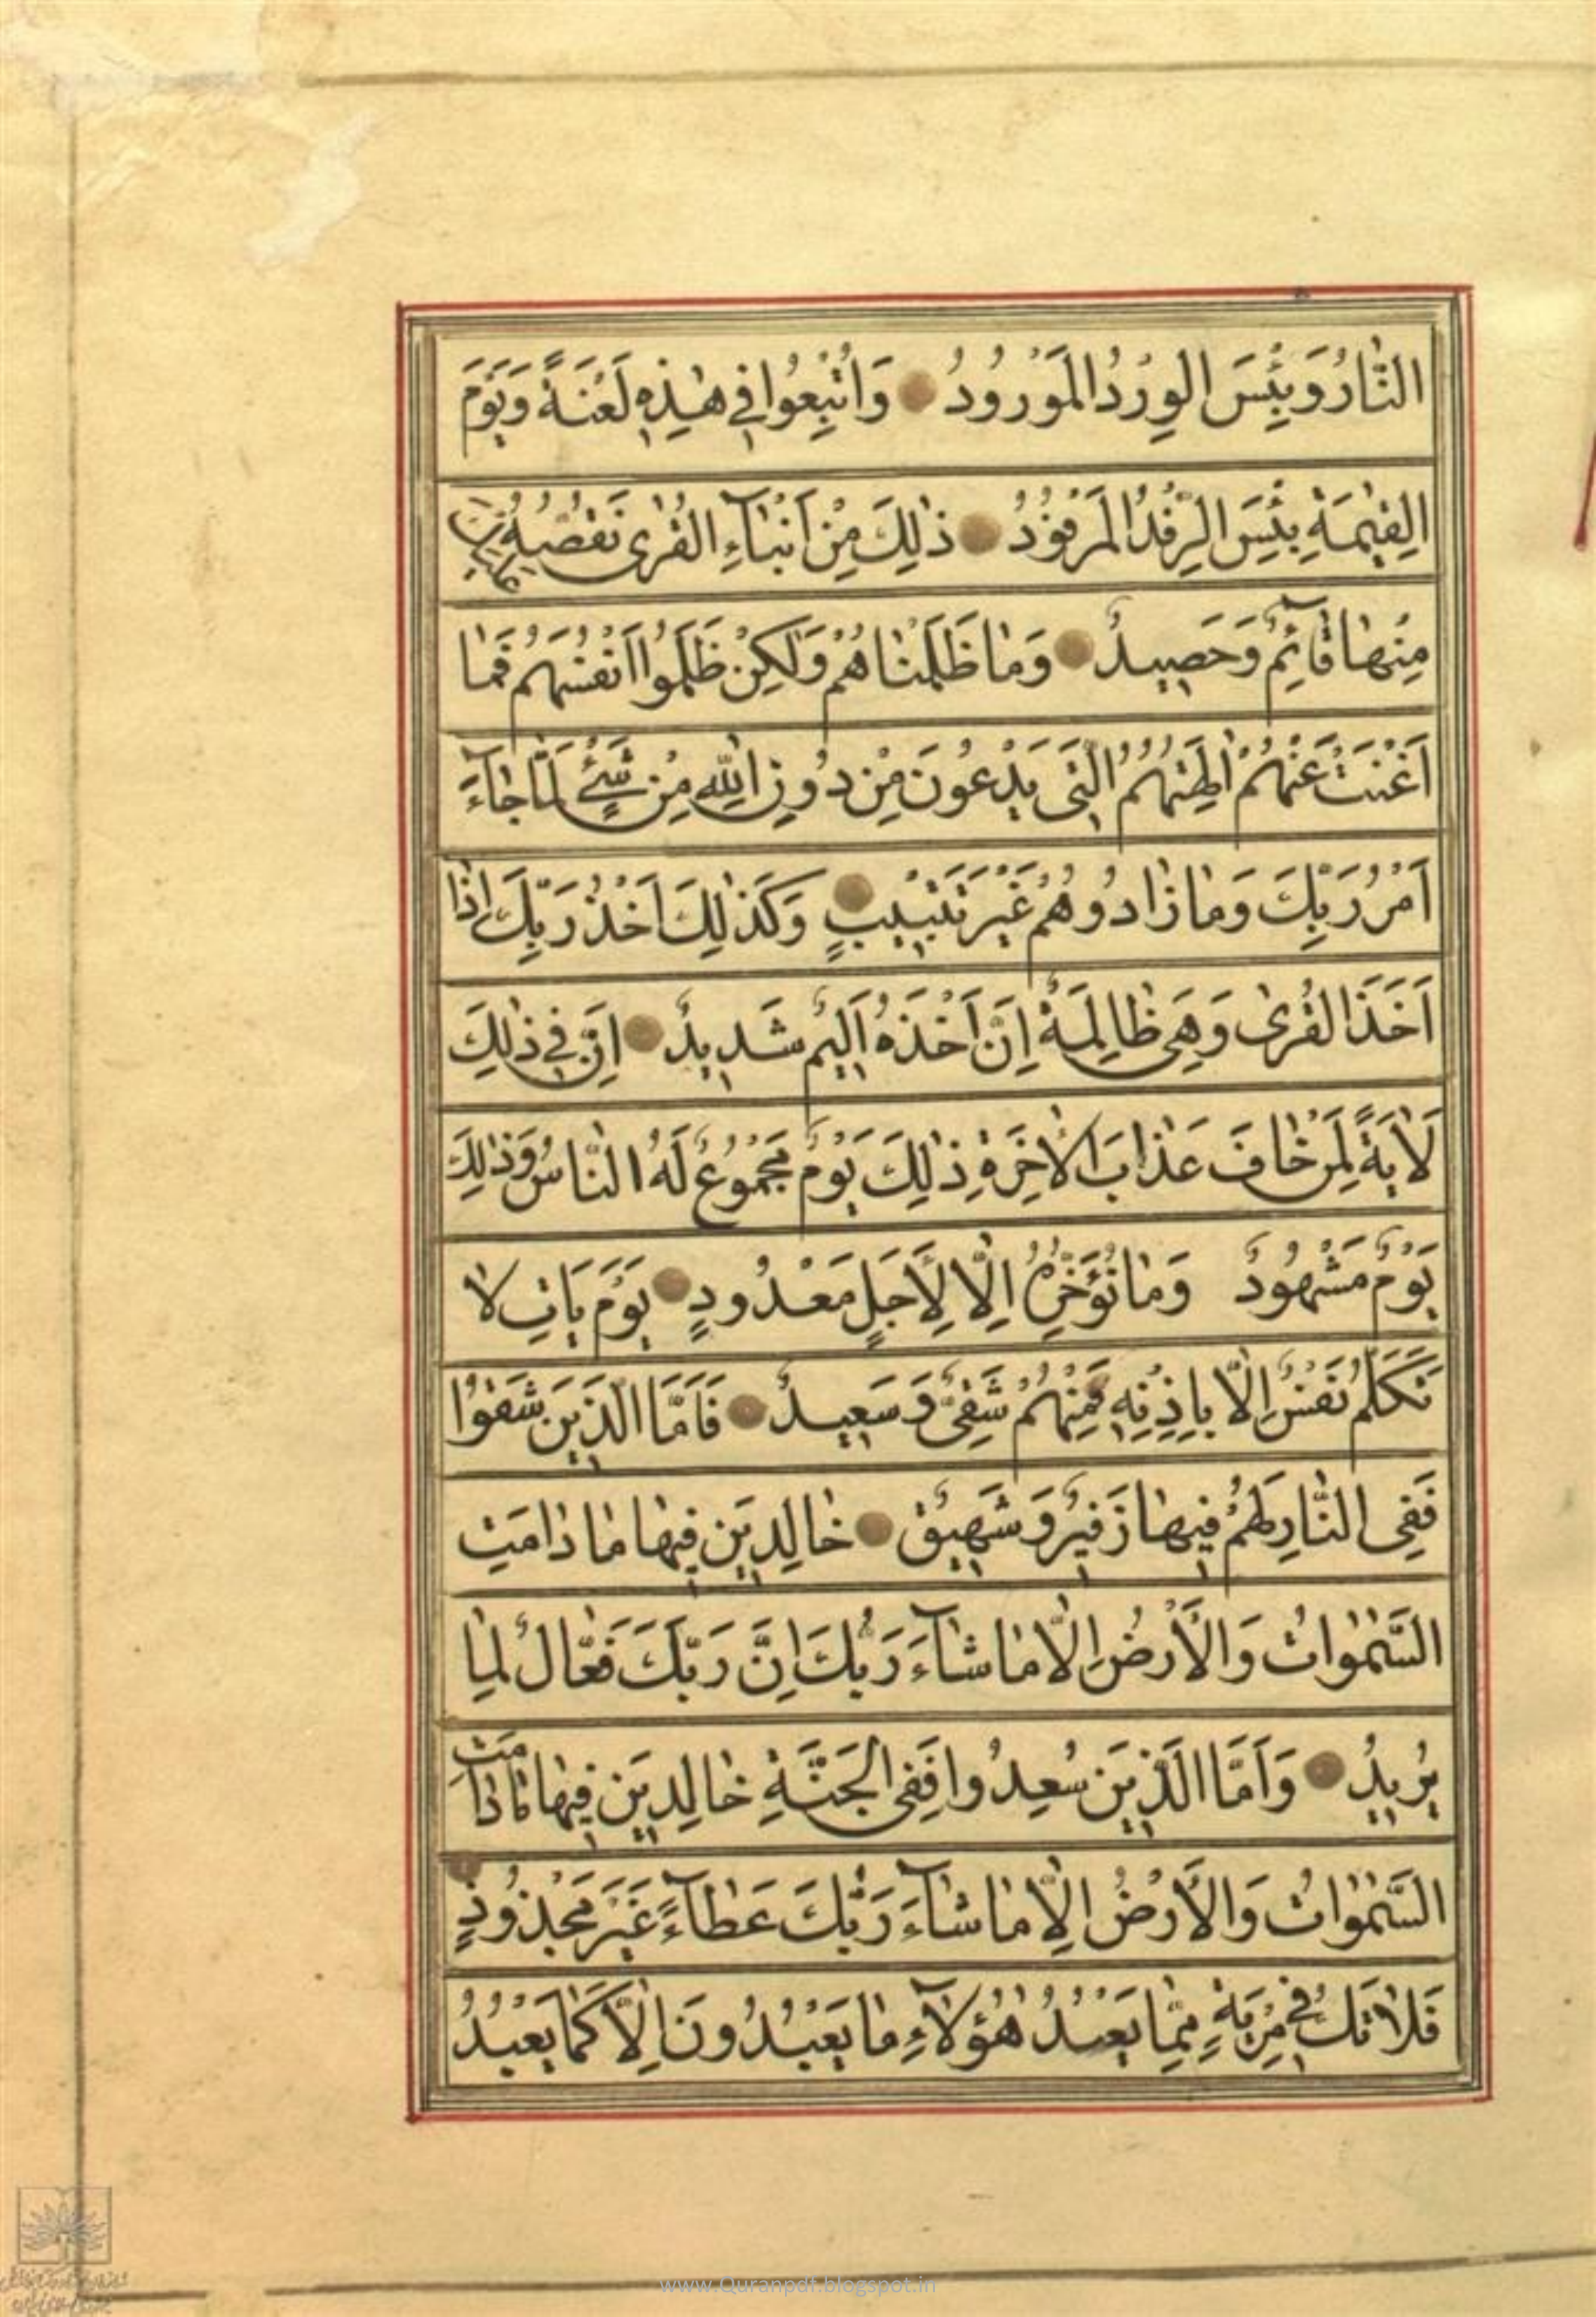 النَّارَ وَبِئْسَ الوِرْدُ المَوْرُودُ وَاُتْبِعُوا فِي هٰذِهِ لَعْنَةً وَيَوْمَ
القِيٰمَةِ بِئْسَ الرِّفْدُ المَرْفُودُ ذٰلِكَ مِنْ اَنْبٰآءِ القُرٰى نَقُصُّهُ عَلَيْكَ
مِنْهٰا قٰآئِمٌ وَحَصِيدٌ وَمٰا ظَلَمْنٰاهُمْ وَلٰكِنْ ظَلَمُوا اَنْفُسَهُمْ فَمٰا
اَغْنَتْ عَنْهُمْ اٰلِهَتُهُمُ الَّتِي يَدْعُونَ مِنْ دُونِ اللّٰهِ مِنْ شَيْءٍ لَمَّا جٰآءَ
اَمْرُ رَبِّكَ وَمٰا زٰادُوهُمْ غَيْرَ تَتْبِيبٍ وَكَذٰلِكَ اَخْذُ رَبِّكَ اِذٰا
اَخَذَ القُرٰى وَهِيَ ظٰالِمَةٌ اِنَّ اَخْذَهُ اَلِيمٌ شَدِيدٌ اِنَّ فِي ذٰلِكَ
لَاٰيَةً لِمَنْ خٰافَ عَذٰابَ الاٰخِرَةِ ذٰلِكَ يَوْمٌ مَجْمُوعٌ لَهُ النّٰاسُ وَذٰلِكَ
يَوْمٌ مَشْهُودٌ وَمٰا نُؤَخِّرُهُ اِلّٰا لِأَجَلٍ مَعْدُودٍ يَوْمَ يَاْتِ لٰا
تَكَلَّمُ نَفْسٌ اِلّٰا بِاِذْنِهِ فَمِنْهُمْ شَقِيٌّ وَسَعِيدٌ فَاَمَّا الَّذِينَ شَقُوا
فَفِي النّٰارِ لَهُمْ فِيهٰا زَفِيرٌ وَشَهِيقٌ خٰالِدِينَ فِيهٰا مٰا دٰامَتِ
السَّمٰوٰاتُ وَالأَرْضُ اِلّٰا مٰا شٰآءَ رَبُّكَ اِنَّ رَبَّكَ فَعّٰالٌ لِمٰا
يُرِيدُ وَاَمَّا الَّذِينَ سُعِدُوا فَفِي الجَنَّةِ خٰالِدِينَ فِيهٰا مٰا دٰامَتِ
السَّمٰوٰاتُ وَالأَرْضُ اِلّٰا مٰا شٰآءَ رَبُّكَ عَطٰآءً غَيْرَ مَجْذُوذٍ
فَلٰا تَكُ فِي مِرْيَةٍ مِمّٰا يَعْبُدُ هٰؤُلٰآءِ مٰا يَعْبُدُونَ اِلّٰا كَمٰا يَعْبُدُ
www.Quranpdf.blogspot.in